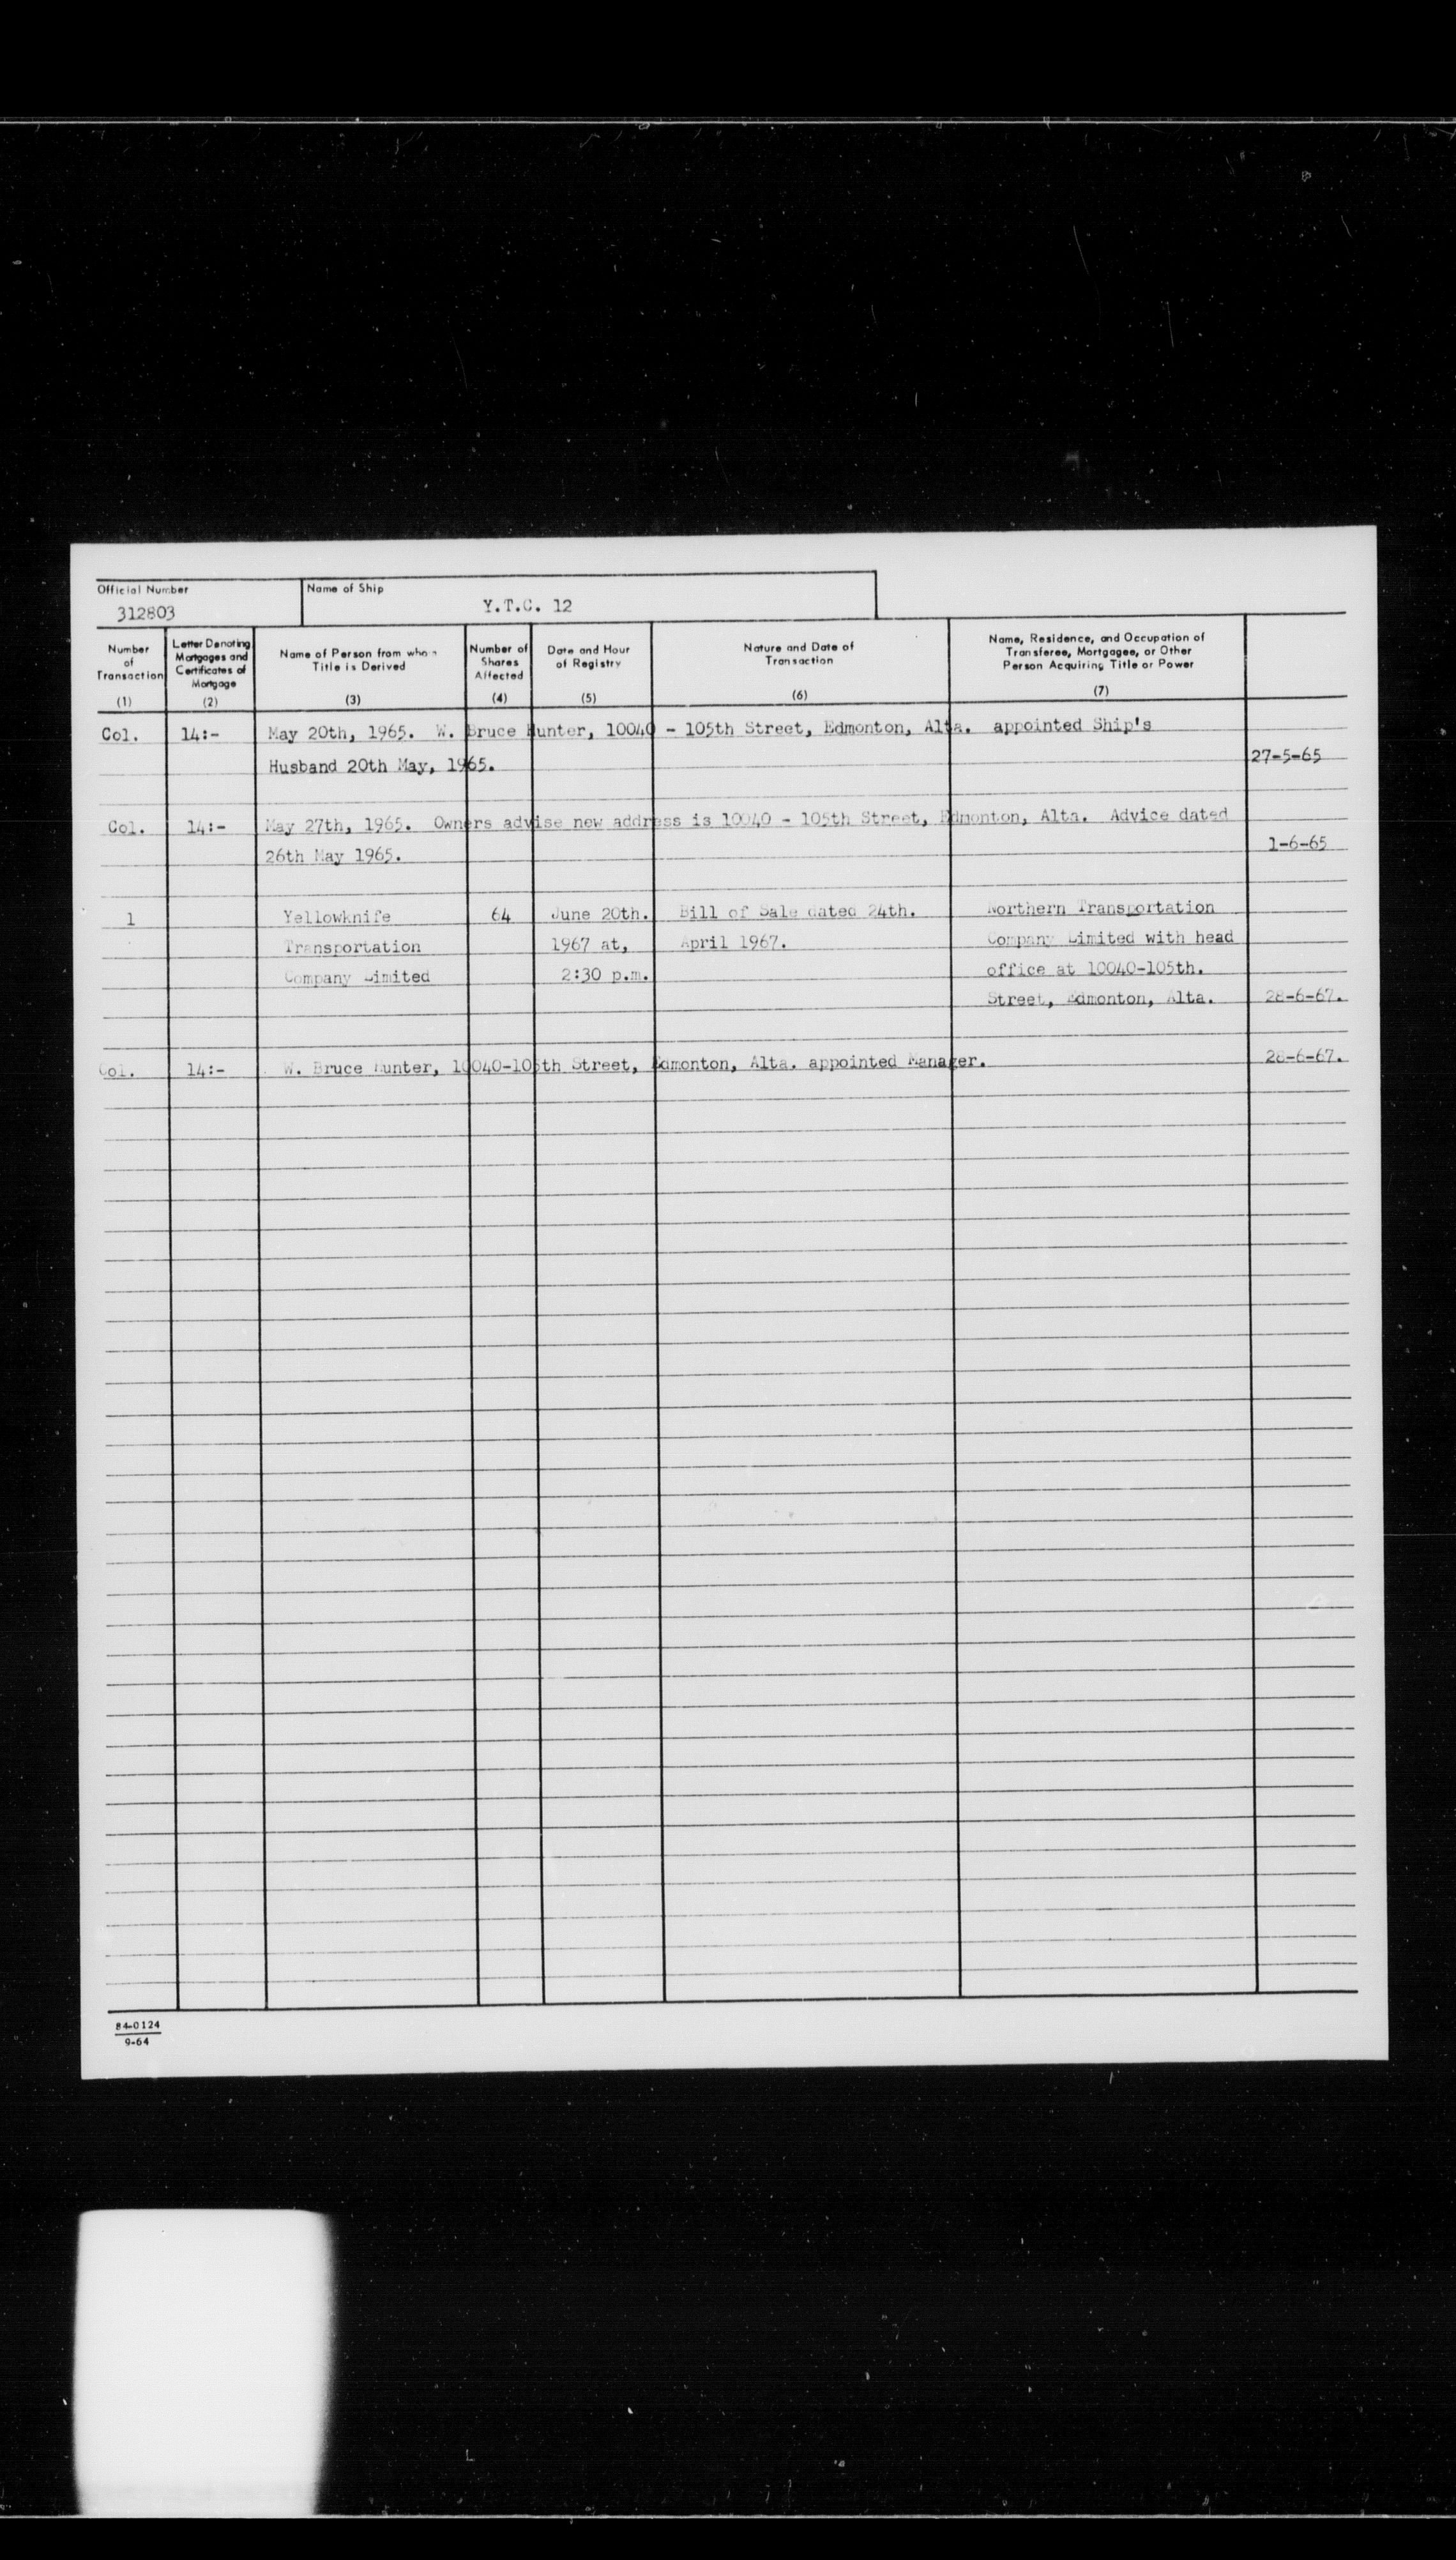 Official Number
312803
Name of Ship
Y.T.C. 12
Number of Transaction (1)
Letter Denoting Mortgages and Certificates of Mortgage (2)
Name of Person from whom Title is Derived (3)
Number of Shares Affected (4)
Date and Hour of Registry (5)
Nature and Date of Transaction (6)
Name, Residence, and Occupation of Transferee, Mortgagee, or Other Person Acquiring Title or Power (7)
Col. 14:- May 20th, 1965. W. Bruce Hunter, 10040 - 105th Street, Edmonton, Alta. appointed Ship's
Husband 20th May, 1965. 27-5-65
Col. 14:- May 27th, 1965. Owners advise new address is 10040 - 105th Street, Edmonton, Alta. Advice dated
26th May 1965. 1-6-65
1 Yellowknife 64 June 20th. Bill of Sale dated 24th. Northern Transportation
Transportation 1967 at, April 1967. Company Limited with head
Company Limited 2:30 p.m. office at 10040-105th.
Street, Edmonton, Alta. 28-6-67.
Col. 14:- W. Bruce Hunter, 10040-105th Street, Edmonton, Alta. appointed Manager. 28-6-67.
84-0124
9-64